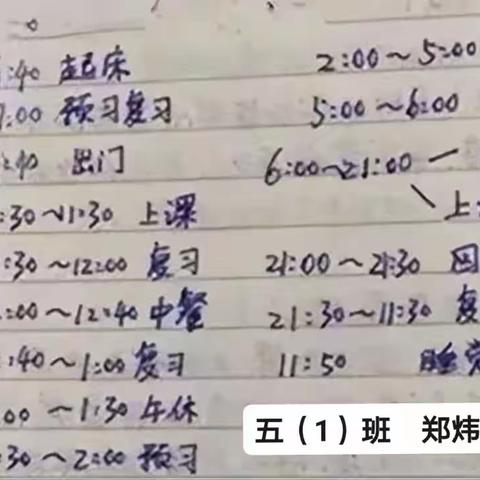 :40 起床
:00 预习复习
:40 出门
:30~11:30 上课
:30~12:00 复习
:00~12:40 中餐
:40~1:00 复习
:00~1:30 午休
:30~2:00 预习
2:00~5:00
5:00~6:00
6:00~21:00
上
21:00~21:30 回
21:30~11:30 复
11:50 睡觉
五（1）班 郑炜